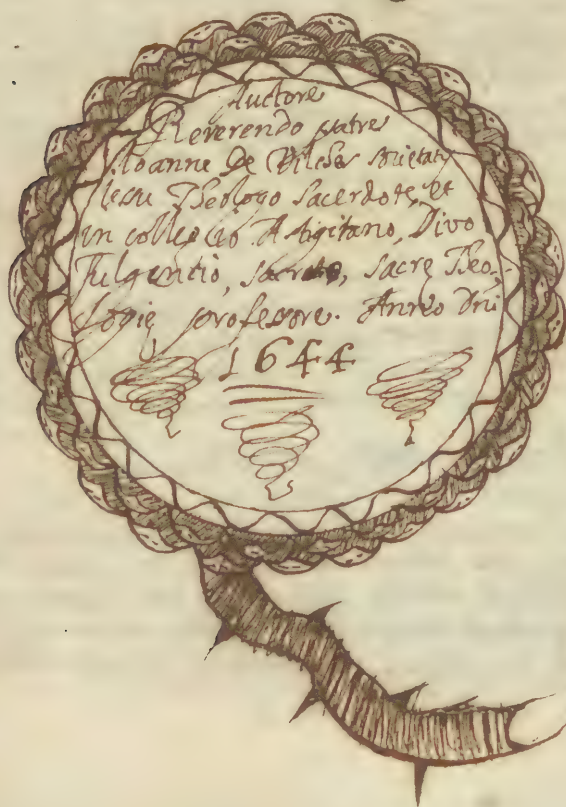 Auctore
Reverendo patre
Ioanne De Vilese societatẹ
Iesu Theologo Sacerdote, et
in collegio Astigitano, Divo
Fulgentio, sacrato, sacrę Theo-
logię professore. Anno Dni
1644